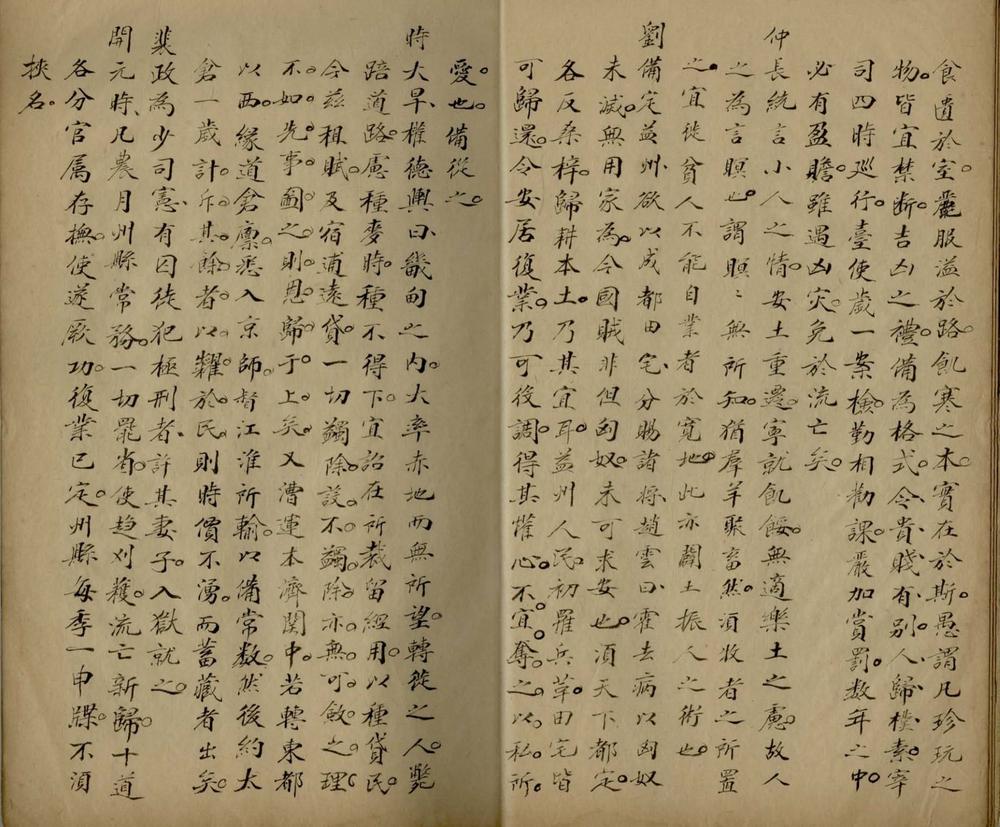 食遺於室。麗服溢於路。飢寒之本。實在於斯。愚謂凡珍玩之
物。皆宜禁斷。吉凶之禮。備為格式。令貴賤有別。人歸樸素。宰
司四時巡行。臺使歲一案檢。勤相勸課。嚴加賞罰。数年之中。
必有盈贍。雖遇凶災。免於流亡矣。
仲長統言小人之情。安土重遷。寧就飢餒。無適樂土之慮。故人
之為言瞑也。謂瞑〻無所知。猶羣羊聚畜。然須收者之所置
之。宜徙貧人不能自業者於寬地。此亦闢土振人之術也。
劉備定益州。欲以成都田宅。分賜諸將。趙雲曰。霍去病以匈奴
未滅。無用家為。今國賊非但匈奴。未可求安也。須天下都定。
各反桑梓。歸耕本土。乃其宜耳。益州人民。初罹兵革。田宅皆
可歸還。令安居復業。乃可後調。得其懽心。不宜奪之。以私所
愛也。備從之。
時大旱。權德輿曰。畿甸之內。大率赤地而無所望。轉徙之人。斃
踣道路。慮種麥時。種不得下。宜詔在所裁留經用。以種貸民。
今茲租賦。及宿逋遠貸。一切蠲除。設不蠲除。亦無可斂之理。
不如先事圖之。則恩歸于上矣。又漕運本濟関中。若轉東都
以西。緣道倉廩。悉入京師。督江淮所輸。以備常数。然後約太
倉一歲計。斥其餘者。以糶於民。則時價不湧。而蓄藏者出矣。
裴政為少司憲。有囚徒犯極刑者。許其妻子入獄就之。
開元時。凡農月州縣常務。一切罷省。使趋刈穫。流亡新歸。十道
各分官属存撫。使遂厥功。復業已定。州縣每季一申牒。不須
挾名。